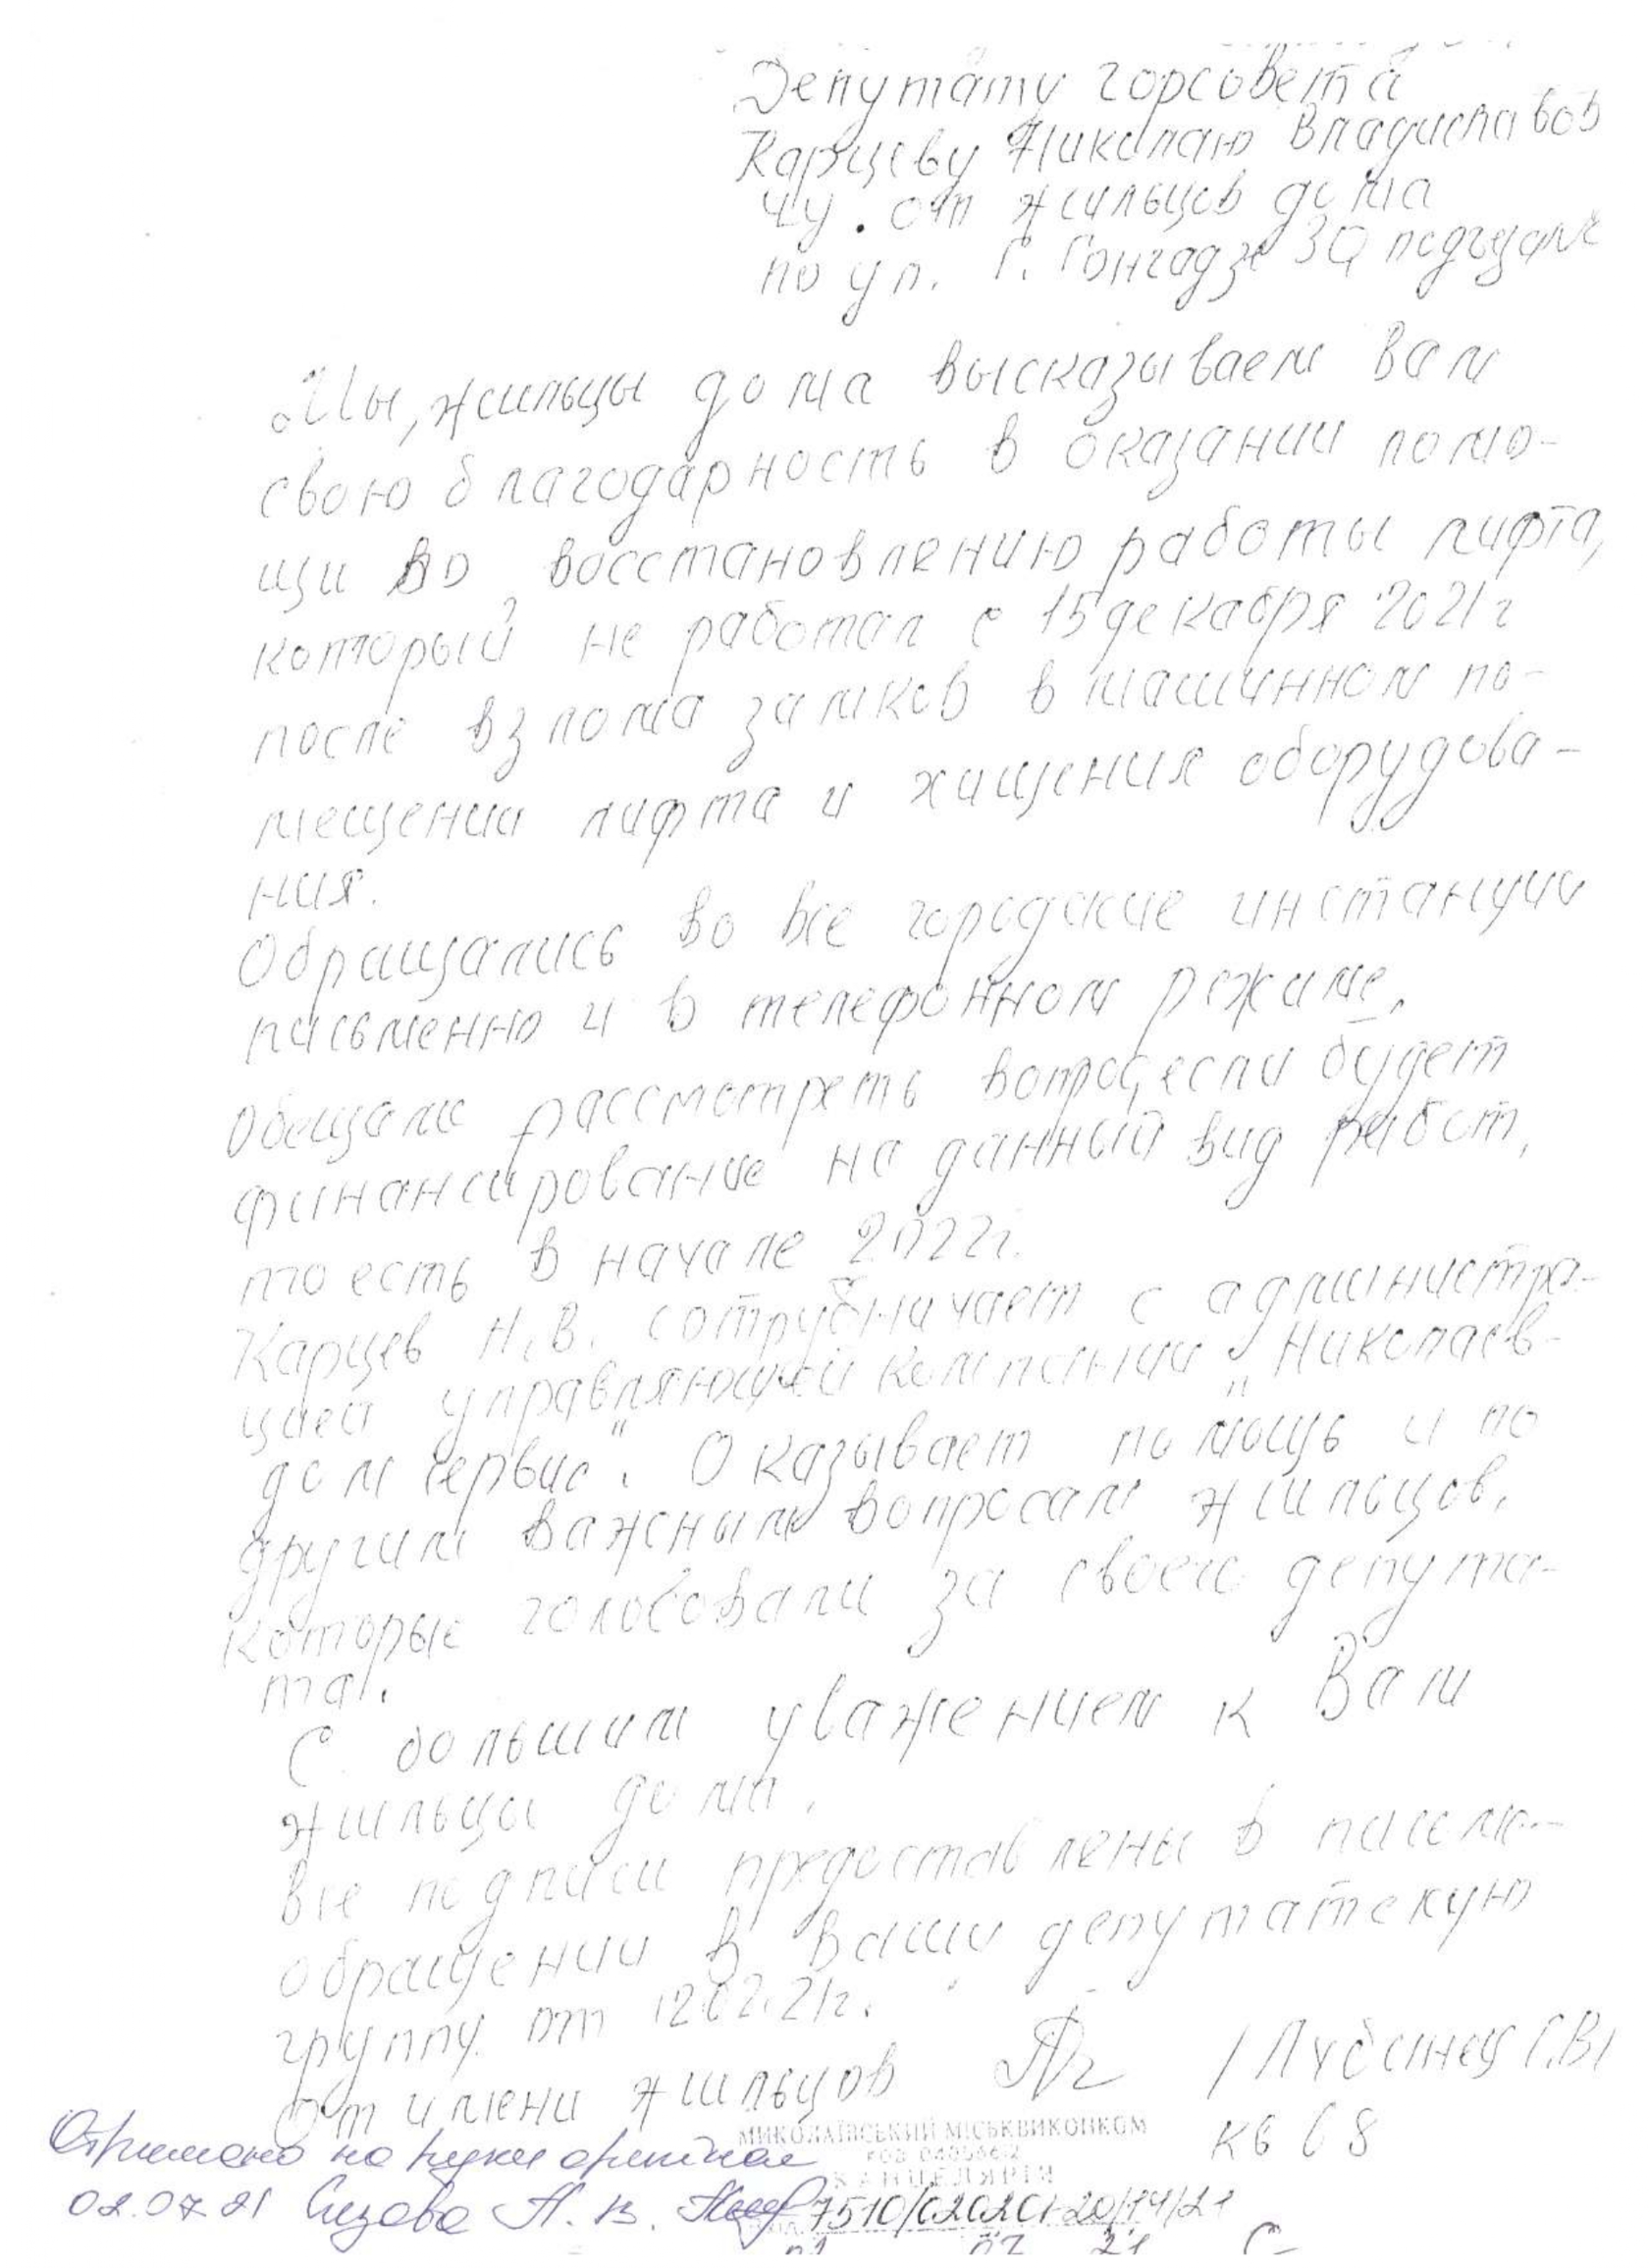 Депутату горсовета
Карцеву Николаю Владиславов
чу. от жильцов дома
по ул. Г. Гонгадзе 30 подъезд №
Мы, жильцы дома высказываем Вам
свою благодарность в оказании помо-
щи по восстановлению работы лифта,
который не работал с 15 декабря 2021г
после взлома замков в машинном по-
мещении лифта и хищения оборудова-
ния.
Обращались во все городские инстанции
письменно и в телефонном режиме.
Обещали рассмотреть вопрос, если будет
финансирование на данный вид работ,
то есть в начале 2022г.
Карцев Н.В. сотрудничает с администра-
цией управляющей компании „Николаев-
дом сервис“. Оказывает помощь и по
другим важным вопросам жильцов,
которые голосовали за своего депута-
та.
С большим уважением к Вам
жильцы дома.
Все подписи предоставлены в письме-
обращении в Вашу депутатскую
группу от 12.02.21г.
От имени жильцов /Лубенец Г.В/
кв 68
МИКОЛАЇВСЬКИЙ МІСЬКВИКОНКОМ
КАНЦЕЛЯРІЯ
Отримано на руки оригінал
02.07.21 Сизова А. В. 7510/020201-20/14/21